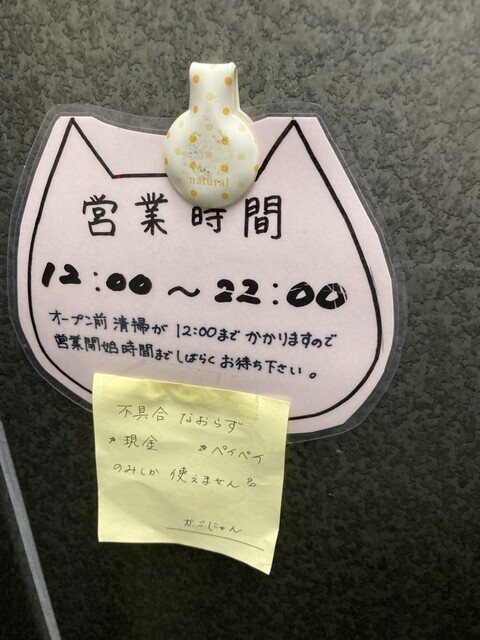 natural
営業時間
12:00 〜 22:00
オープン前清掃が12:00までかかりますので
営業開始時間までしばらくお待ち下さい。
不具合なおらず
現金 ペイペイ
のみしか使えません
かぶにゃん